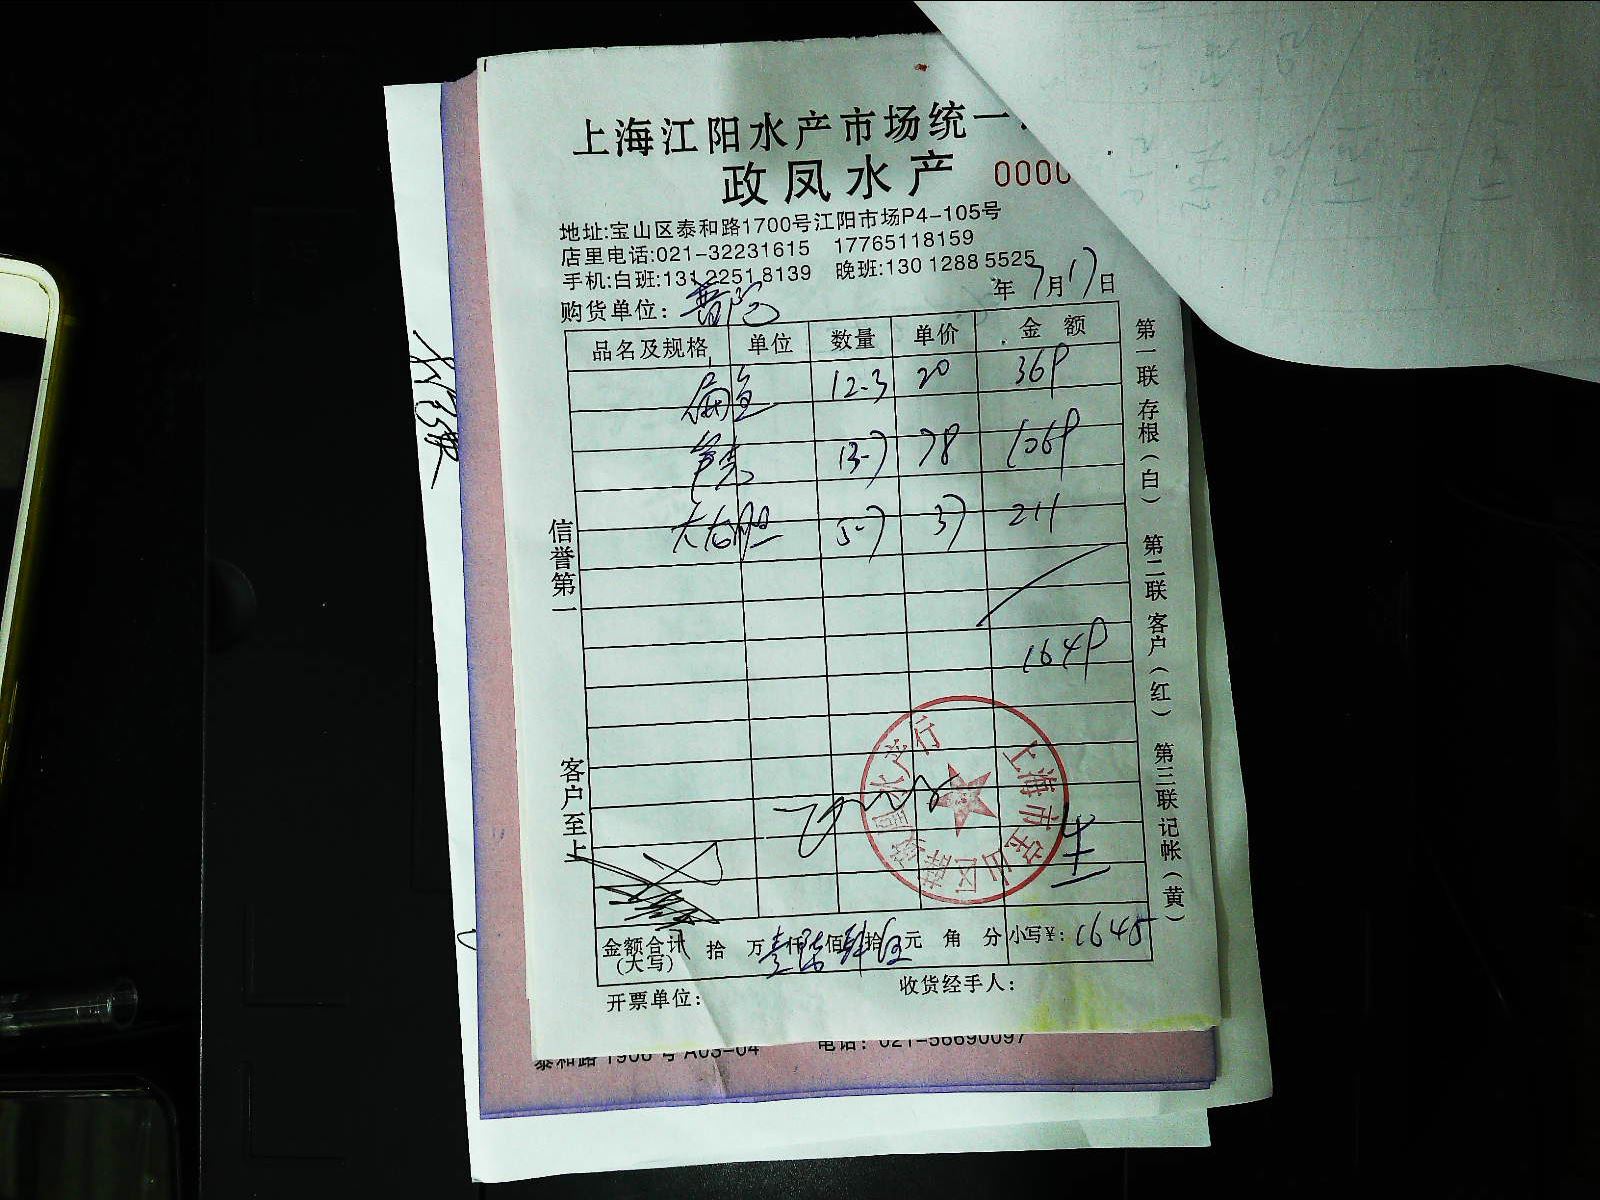 上海江阳水产市场统一
政凤水产 0000
地址:宝山区泰和路1700号江阳市场P4-105号
店里电话:021-32231615 17765118159
手机:白班:131 2251 8139 晚班:130 1288 5525
购货单位: 普陀 年 7月17日
品名及规格 单位 数量 单价 金 额
扁鱼 12-3 20 369
13-7 78 1069
大右胆 5-7 37 211
1649
信誉第一
客户至上
第一联 存根(白) 第二联 客户(红) 第三联 记帐(黄)
金额合计(大写) 拾 万 壹仟 陆佰 肆拾 伍元 角 分 小写¥: 1645
开票单位: 收货经手人:
泰和路 1906 号 A03-04 电话: 021-56690097